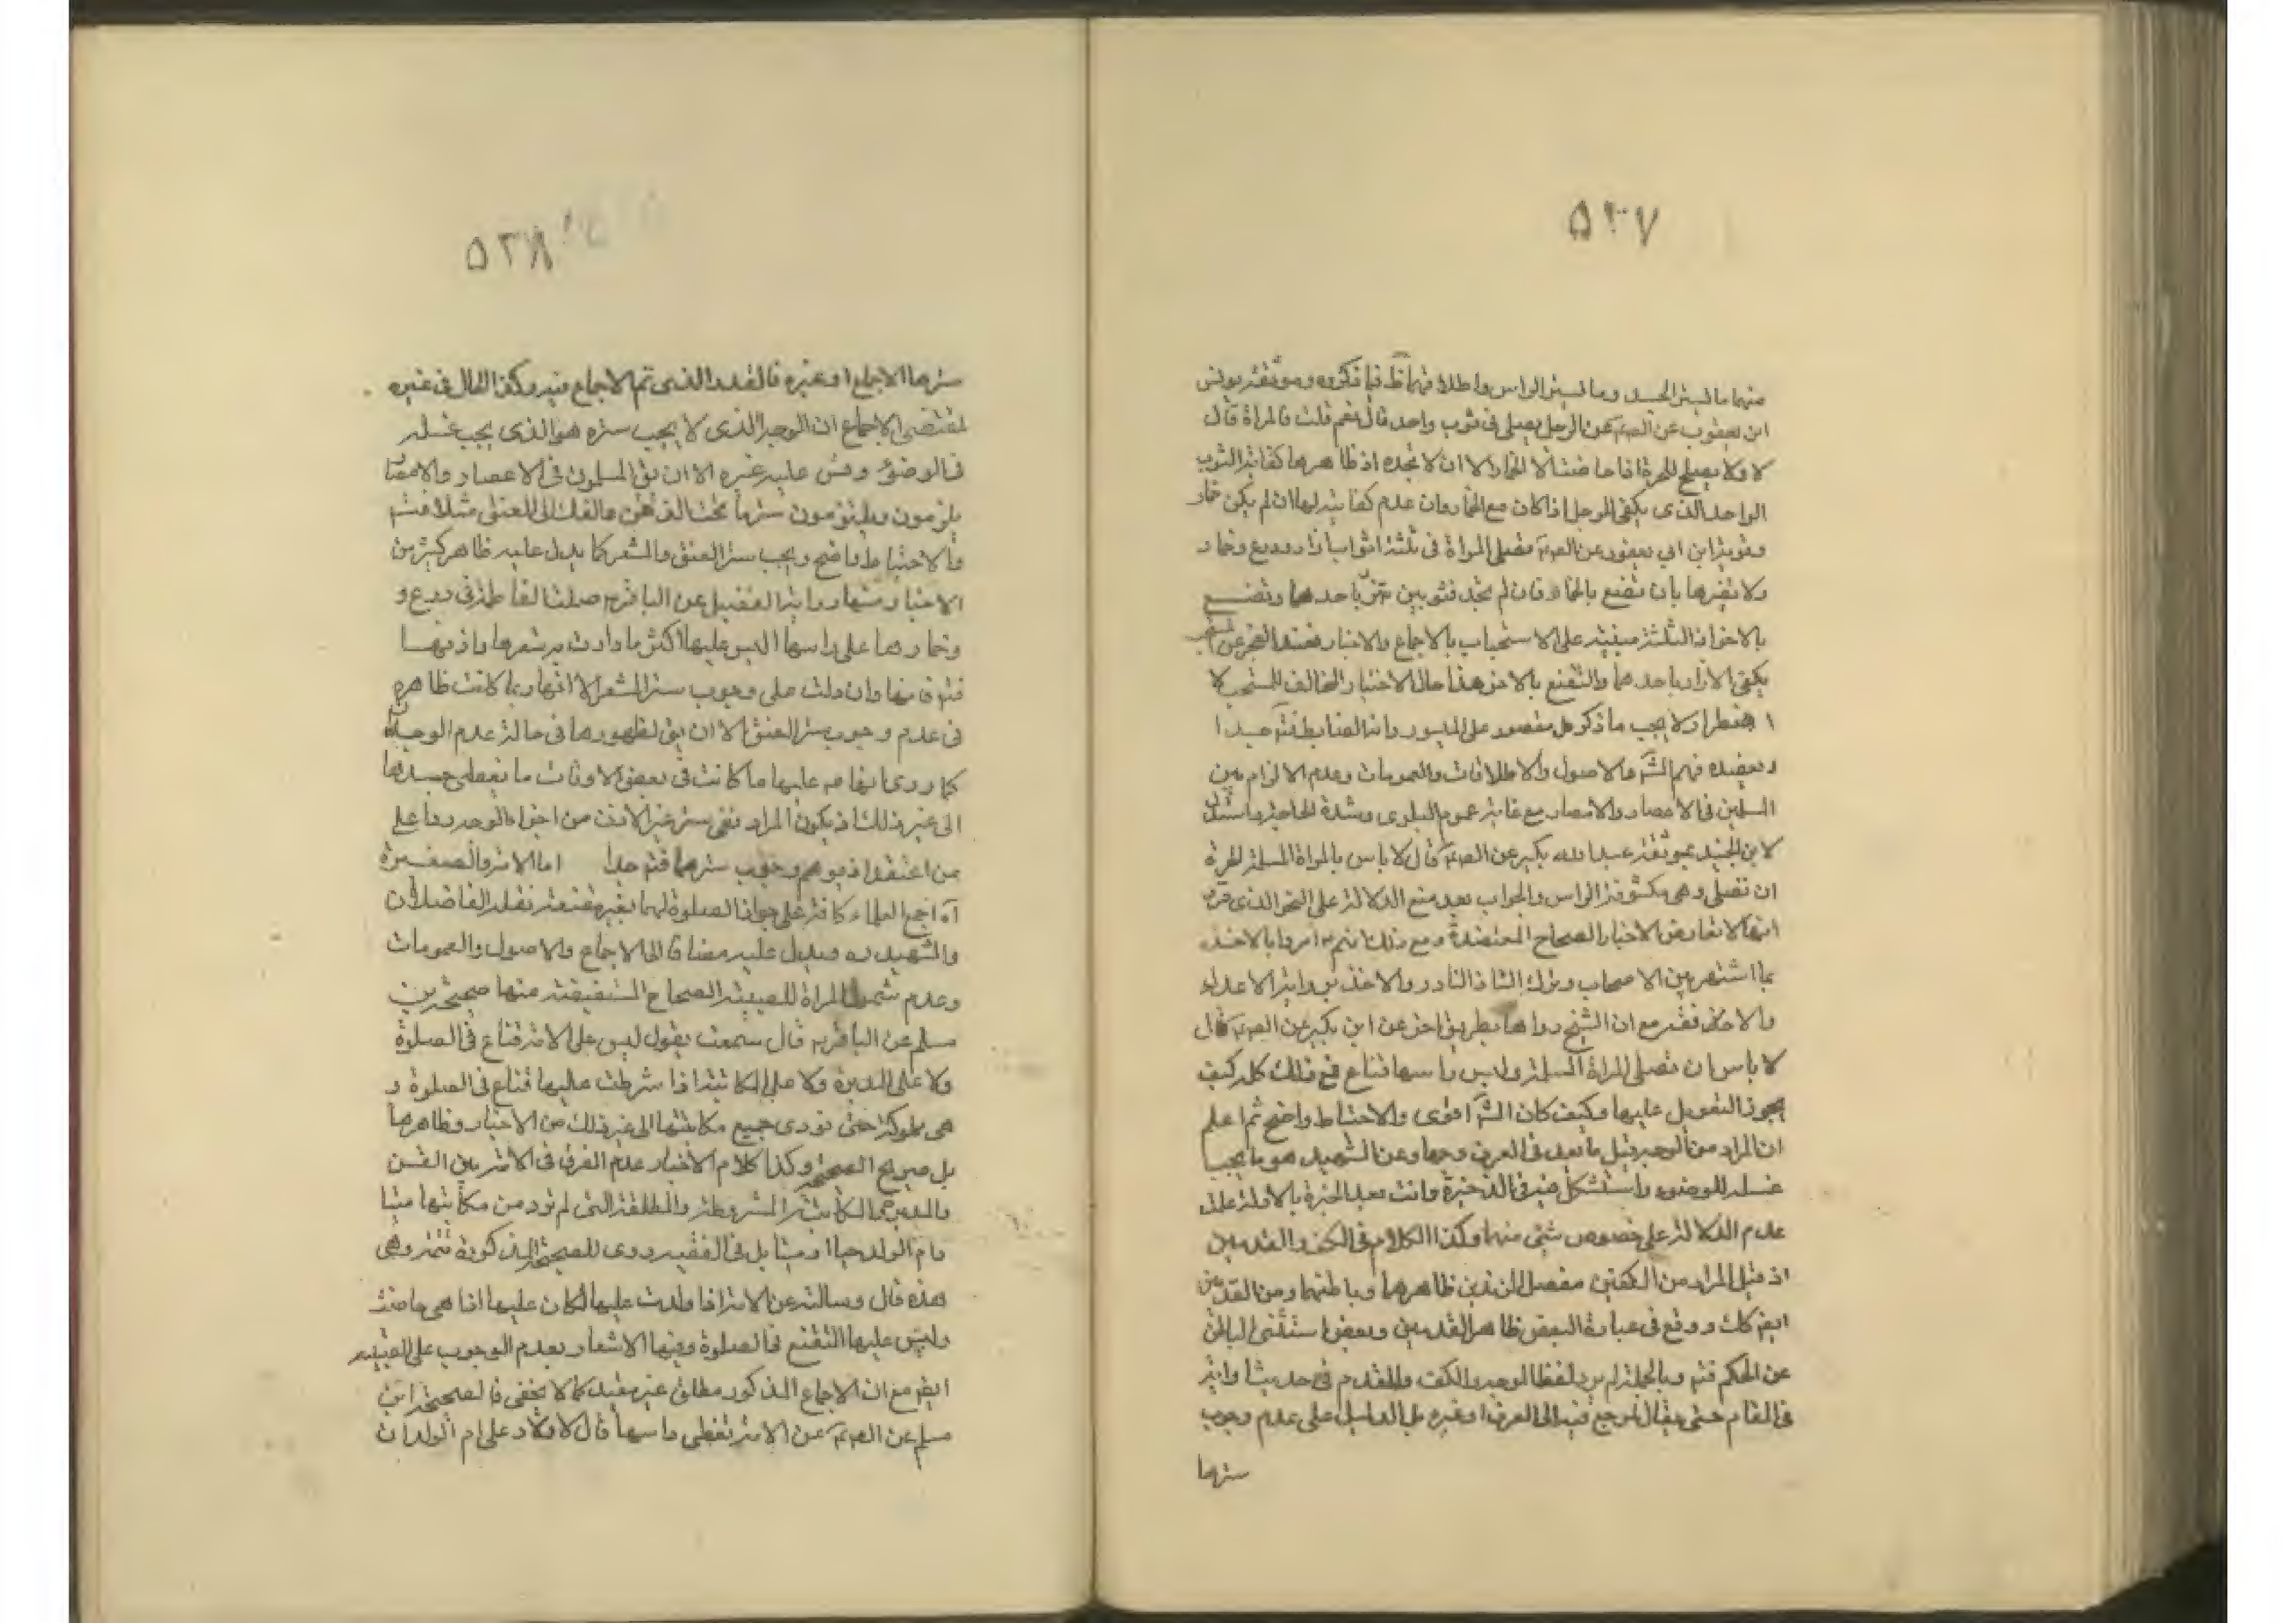 ٥٢٧
منهما ما ليستر الجسد وما ليستر الراس واطلاقهما ظ فيما ذكروه وموثقة يونس
ابن يعقوب عن الصم عن الرجل يصلى فى ثوب واحد قال نعم قلت فالمراة قال
لا ولا يصلح للحرة اذا حاضت الا الخمار الا ان لا تجده اذ ظاهرها كفاية الثوب
الواحد الذى يكفى للرجل اذا كان مع الخمار وان عدم كفايته لها ان لم يكن خمار
وقوية ابن ابي يعفور عن الصم تصلى المراة فى ثلثة اثواب ازار ودرع وخمار
ولا يضرها بان تقنع بالخمار فان لم تجد فثوبين تتزر باحدهما وتقنع
بالاخر اذ الثلثة مبنية على الاستحباب بالاجماع والاخبار فعند العجز عن المستحب
يكفى الازار باحدهما والتقنع بالاخر هذا حال الاختيار المخالف للمستحب لا
اضطرار ولا يجب ما ذكر هل مقصور على الميسور وانه الضابط فتم جيدا
ويعضده فهم الش والاصول والاطلاقات والعمومات وعدم الالزام بين
المسلمين فى الاعصار والامصار مع غاية عموم البلوى وشدة الحاجة واستدل
لابن الجنيد بموثقة عبد الله بكير عن الصم قال لا باس بالمراة المسلمة الحرة
ان تصلى وهى مكشوفة الراس والجواب بعد منع الدلالة على النحو الذى مر
انها لا تعارض الاخبار الصحاح المعتضدة ومع ذلك انهم امروا بالاخذ
بما اشتهر بين الاصحاب وترك الشاذ النادر والاخذ برواية الاعدل
والافقه مع ان الشيخ رواها بطريق اخر عن ابن بكير عن الصم قال
لا باس ان تصلى المراة المسلمة وليس راسها قناع فمع ذلك كله كيف
يجوز التعويل عليها وكيف كان الش اقوى والاحتياط واضح ثم اعلم
ان المراد من الوجه قيل ما يعد فى العرف وجها وعن الشهيد هو ما يجب
غسله للوضوء واستشكل فيه فى الذخيرة وانت بعد الخبرة بالادلة علمت
عدم الدلالة على خصوص شئ منهما وكذا الكلام فى الكف والقدمين
اذ قيل المراد من الكفين مفصل الزندين ظاهرهما وباطنهما ومن القدمين
ايضا كك ووقع فى عبارة البعض ظاهر القدمين وبعض استثنى الباطن
عن الحكم فتم وبالجملة لم يرد لفظ الوجه والكف والقدم فى حديث او اية
فى المقام حتى يقال المرجع فيه الى العرف او غيره بل الدليل على عدم وجوب
سترها
٥٢٨
سترها الاجماع او غيره فالقدر الذى تم الاجماع فيه وكذا الحال فى غيره
لمقتضى الاجماع ان الوجه الذى لا يجب ستره هو الذى يجب غسله
فى الوضوء وقس عليه غيره الا ان يق المسلمون فى الاعصار والامصار
يلزمون ويلتزمون سترها تحت الذقن مالفك الى العنق مثلا فتم
والاحتياط واضح ويجب ستر العنق والشعر كما يدل عليه ظاهر كثير من
الاخبار منها رواية الفضيل عن الباقر ع صلت الفاطمة فى درع و
وخمارها على راسها ليس عليها اكثر ما وارت به شعرها واذنيها
فتم فيها وان دلت على وجوب ستر الشعر الا انها ربما كانت ظاهرة
فى عدم وجوب ستر العنق الا ان يق لظهورها فى حالة عدم الوجدان
كما روى انها ص عليها ما كانت فى بعض الاوقات ما يغطى جسدها
الى غير ذلك اذ يكون المراد نفى ستر غير الاذن من اجزاء الوجه ردا على
من اعتقد اذ يوهم وجوب سترهما فتم جدا اما الامة والصغيرة
اه اجمع العلماء كافة على جواز الصلوة لهما بغير مقنعة نقله الفاضلان
والشهيد ره ويدل عليه مضافا الى الاجماع والاصول والعمومات
وعدم شمول المراة للصبية الصحاح المستفيضة منها صحيحة بن
مسلم عن الباقر ع قال سمعته يقول ليس على الامة قناع فى الصلوة
ولا على المدبرة ولا على المكاتبة اذا شرطت عليها قناع فى الصلوة و
هى مملوكة حتى تودى جميع مكاتبتها الى غير ذلك من الاخبار وظاهرها
بل صريح الصحيحة وكذا كلام الاخيار عدم الفرق فى الامة بين القن
والمدبرة والمكاتبة المشروطة والمطلقة التى لم تود من مكاتبتها شيئا
وام الولد حيا او ميتا بل فى الفقيه روى للصحيحة المذكورة تتمة وهى
هذه قال وسالته عن الامة اذا ولدت عليها لكان عليها اذا هى حاضت
وليس عليها التقنع فى الصلوة وفيها الاشعار بعدم الوجوب على الصبية
ايض مع ان الاجماع المذكور مطلق غير مقيد كما لا يخفى فالصحيحة ابن
مسلم عن الصم عن الامة تغطى راسها قال لا ولا على ام الولد ان